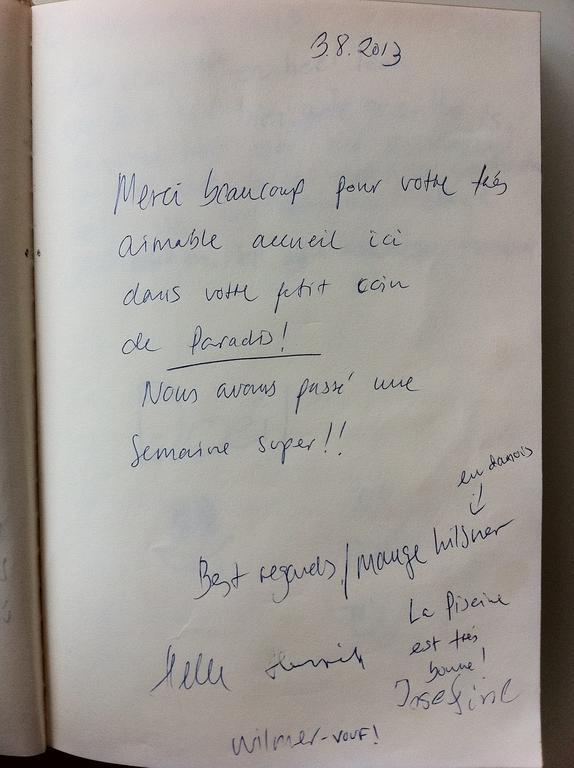 3.8.2013
Merci beaucoup pour votre trés
aimable accueil ici
dans votre petit coin
de Paradis!
Nous avons passé une
Semaine super!!
en danois
Best regards/mange hilsner
La Piscine
est trés
bonne!
Helle Henrik
Josefine
Wilmer-vouf!